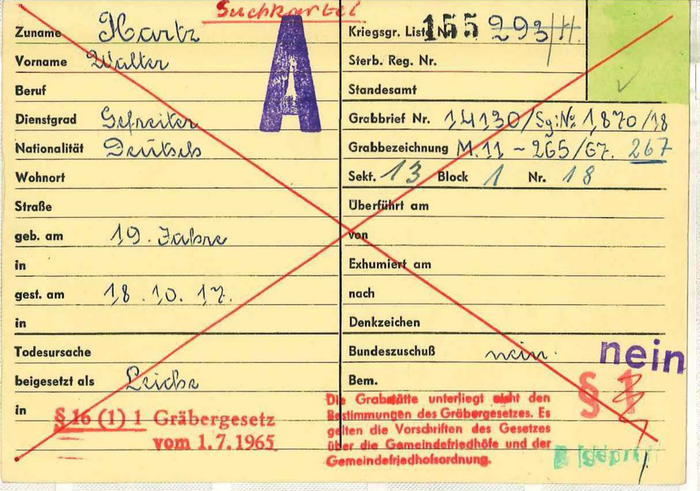 Suchkartei
Zuname Hartz
Vorname Walter
Beruf
Dienstgrad Gefreiter
Nationalität Deutsch
Wohnort
Straße
geb. am 19. Jahre
in
gest. am 18.10.17.
in
Todesursache
beigesetzt als Leiche
in
§ 16 (1) 1 Gräbergesetz
vom 1.7.1965
A
Kriegsgr. Liste Nr. 155 293/H.
Sterb. Reg. Nr.
Standesamt
Grabbrief Nr. 14130/Sg:No 1,870/18
Grabbezeichnung M.11 - 265/67. 267
Sekt. 13 Block 1 Nr. 18
Überführt am
von
Exhumiert am
nach
Denkzeichen
Bundeszuschuß nein. nein
Bem.
§ 1
Die Grabstätte unterliegt nicht den
Bestimmungen des Gräbergesetzes. Es
gelten die Vorschriften des Gesetzes
über die Gemeindefriedhöfe und der
Gemeindefriedhofsordnung.